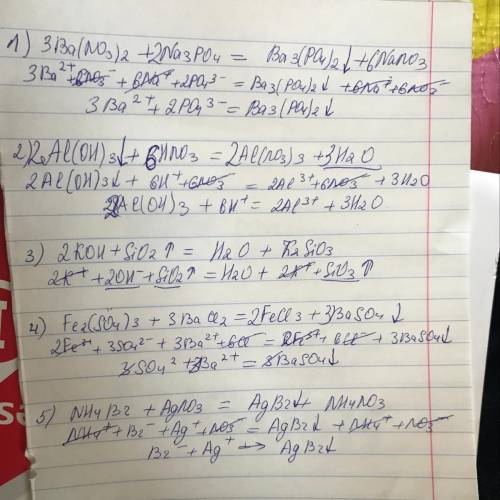 1) 3Ba(NO3)2 + 2Na3PO4 = Ba3(PO4)2↓ + 6NaNO3
3Ba²⁺ + 6NO3⁻ + 6Na⁺ + 2PO4³⁻ = Ba3(PO4)2↓ + 6Na⁺ + 6NO3⁻
3Ba²⁺ + 2PO4³⁻ = Ba3(PO4)2↓
2) 2Al(OH)3↓ + 6HNO3 = 2Al(NO3)3 + 3H2O
2Al(OH)3↓ + 6H⁺ + 6NO3⁻ = 2Al³⁺ + 6NO3⁻ + 3H2O
2Al(OH)3 + 6H⁺ = 2Al³⁺ + 3H2O
3) 2KOH + SiO2↑ = H2O + K2SiO3
2K⁺ + 2OH⁻ + SiO2↑ = H2O + 2K⁺ + SiO3↑
4) Fe2(SO4)3 + 3BaCl2 = 2FeCl3 + 3BaSO4↓
2Fe³⁺ + 3SO4²⁻ + 3Ba²⁺ + 6Cl⁻ = 2Fe³⁺ + 6Cl⁻ + 3BaSO4↓
3SO4² + 3Ba²⁺ = 3BaSO4↓
5) NH4Br + AgNO3 = AgBr↓ + NH4NO3
NH4⁺ + Br⁻ + Ag⁺ + NO3⁻ = AgBr↓ + NH4⁺ + NO3⁻
Br⁻ + Ag⁺ → AgBr↓